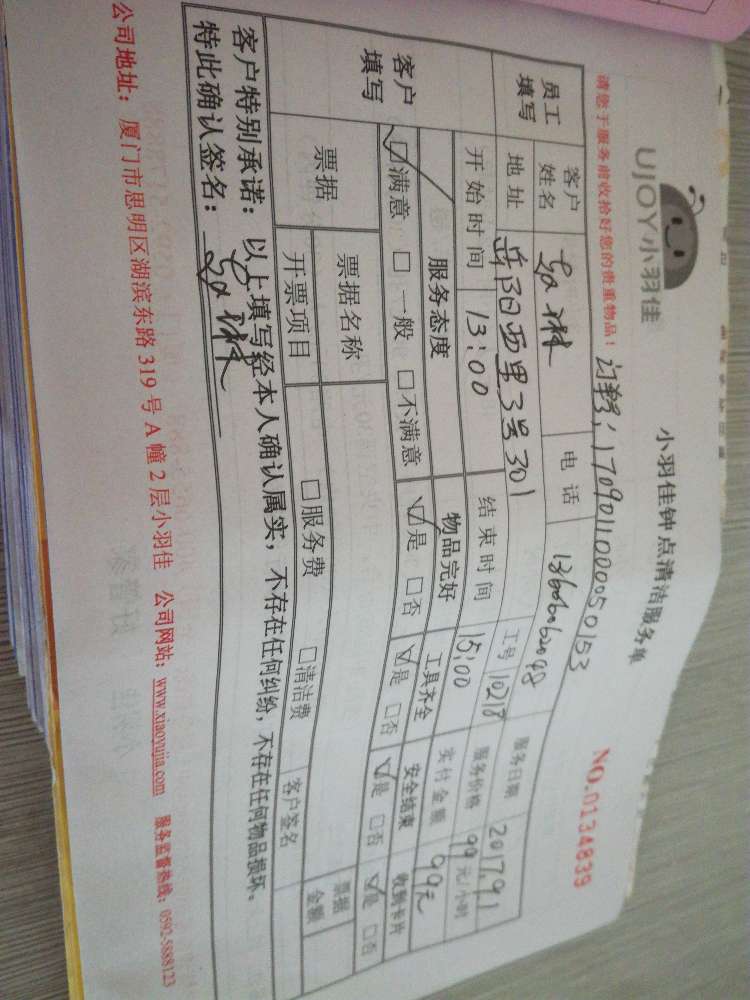 UJOY小羽佳
小羽佳钟点清洁服务单
NO.0134839
请您于服务前收拾好您的贵重物品！ 订单号：1709011000050153
员工填写 客户姓名 电话 服务日期 2017.9.1
地址 岳阳西里3号301 工号 10218 服务价格 99元/小时
客户填写 开始时间 13:00 结束时间 15:00 实付金额 99元
服务态度 物品完好 工具齐全 安全结束 收到卡片
☑满意 □一般 □不满意 ☑是 □否 ☑是 □否 ☑是 □否 ☑是 □否
票据 票据名称 票据金额
开票项目 □服务费 □清洁费 客户签名
客户特别承诺：以上填写经本人确认属实，不存在任何纠纷，不存在任何物品损坏。
特此确认签名：
公司地址：厦门市思明区湖滨东路319号A幢2层小羽佳 公司网站：www.xiaoyujia.com 服务监督热线：0592-5888123